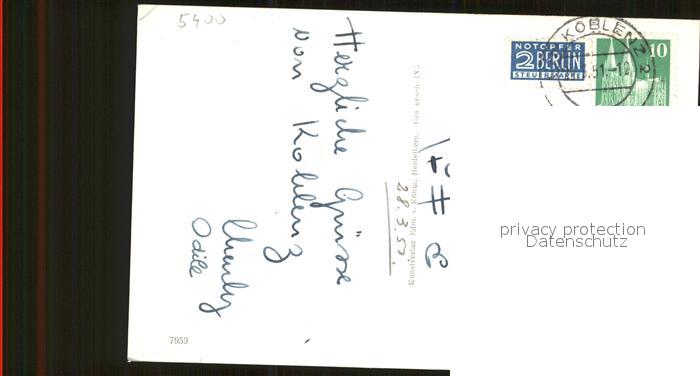 5400
Herzliche Grüsse
von Koblenz
Odile
28.3.51.
Kunstverlag Edm. v. König, Heidelberg. Ges. gesch.
7959
NOTOPFER
2 BERLIN
STEUERMARKE
KOBLENZ 2
.51-12
10
privacy protection
Datenschutz